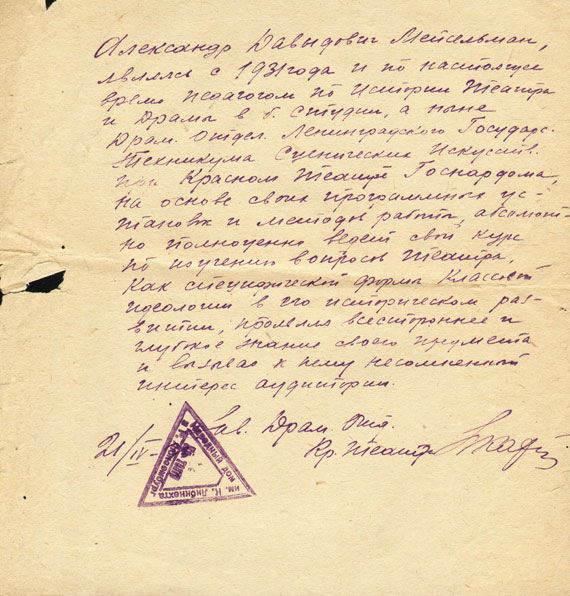 Александр Давыдович Мейсельман,
являясь с 1931 года и по настоящее
время педагогом по истории театра
и драмы в б. студии, а ныне
Драм. отдел. Ленинградского Государс.
Техникума Сценических Искусств.
при Красном Театре Госнардома,
на основе своих программных ус-
тановок и методов работы, абсолют-
но полноценно ведет свой курс
по изучению вопросов театра,
как специфической формы классовой
идеологии в его историческом раз-
витии, проявляя всестороннее и
глубокое знание своего предмета
и вызывая к нему несомненный
интерес аудитории.
Зав. Драм. Отд.
21/IV- Кр. Театра
им. К. Либкнехта
Народный дом
и Р. Люксембург